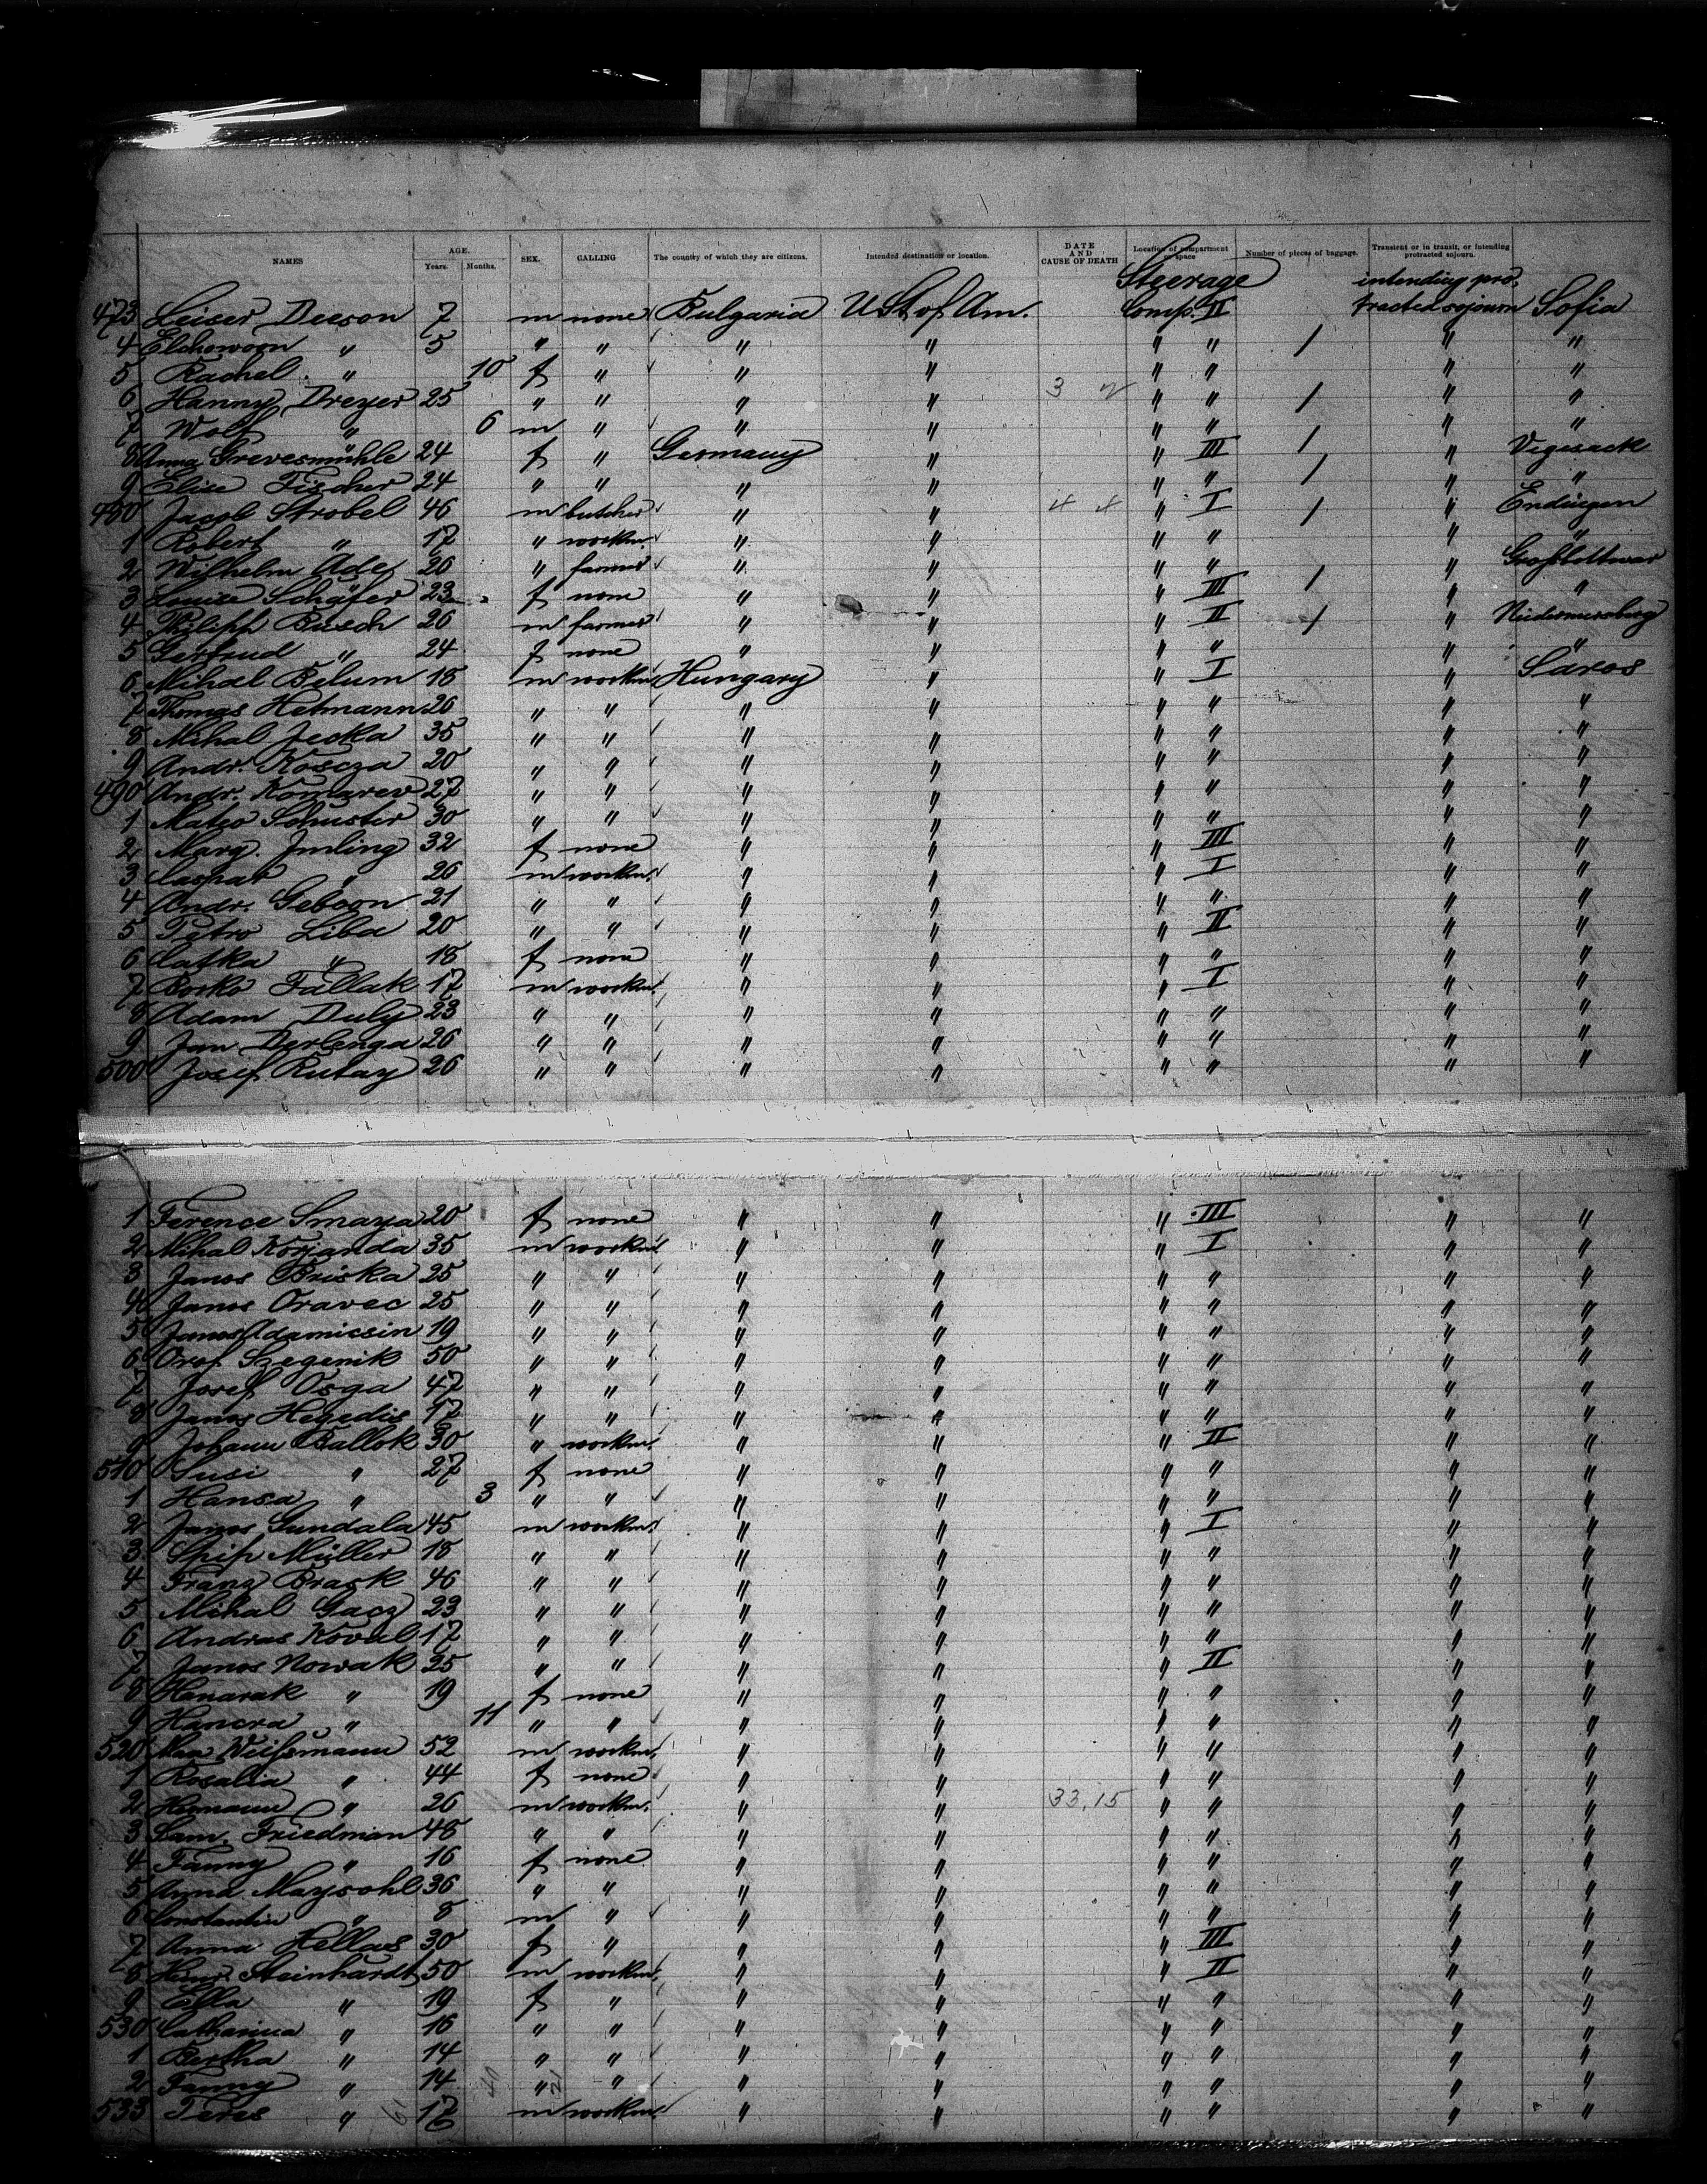 NAMES AGE. Years. Months. SEX. CALLING The country of which they are citizens. Intended destination or location. DATE AND CAUSE OF DEATH Location of compartment or space Number of pieces of baggage. Transient or in transit, or intending protracted sojourn.
Steerage intending pro-
473 Leiser Deeson 7 m none Bulgaria U St of Am. Comp. II tracted sojourn Sofia
4 Elchowoon " 5 " " " " " " / " "
5 Rachel " 10 f " " " " " " "
6 Hanny Dreyer 25 " " " " 3 2 " " / " "
7 Wolf " 6 m " " " " " " "
8 Anna Grevesmühle 24 f " Germany " " III / " Vegesack
9 Elise Fischer 24 " " " " " " / " "
480 Jacob Strobel 46 m butcher " " 4 4 " I / " Endingen
1 Robert " 17 " workm. " " " " " "
2 Wilhelm Ade 26 " farmer " " " " " Großbottwar
3 Louise Schäfer 23 f none " " " III / " "
4 Philipp Busch 26 m farmer " " " II / " Niedermersberg
5 Gertrud " 24 f none " " " " " "
6 Mihael Belum 18 m workm. Hungary " " I " Saros
7 Thomas Hetmann 26 " " " " " " " "
8 Mihal Jecka 35 " " " " " " " "
9 Andr. Koscza 20 " " " " " " " "
490 Andr. Komarev 27 " " " " " " " "
1 Mateo Schuster 30 " " " " " " " "
2 Marg. Imling 32 f none " " " III " "
3 Caspar " 26 m workm. " " " I " "
4 Andr. Geboon 21 " " " " " " " "
5 Petro Liba 20 " " " " " II " "
6 Catka " 18 f none " " " " " "
7 Rosko Fallak 17 m workm. " " " I " "
8 Adam Duly 23 " " " " " " " "
9 Jan Derlenga 26 " " " " " " " "
500 Josef Rutay 26 " " " " " " " "
1 Ference Smaya 20 f none " " " III " "
2 Mihal Korjanda 35 m workm. " " " I " "
3 Janos Briska 25 " " " " " " " "
4 Janos Oravec 25 " " " " " " " "
5 Janos Adamicsin 19 " " " " " " " "
6 Orof. Szegenik 50 " " " " " " " "
7 Josef Osga 47 " " " " " " " "
8 Janos Hegedüs 17 " " " " " " " "
9 Johann Ballok 30 " workm. " " " II " "
510 Susi " 27 f none " " " " " "
1 Hansa " 3 " " " " " " " "
2 Janos Gundala 45 m workm. " " " I " "
3 Müller 18 " " " " " " " "
4 Franz Brack 46 " " " " " " " "
5 Mihal Gacz 23 " " " " " " " "
6 Andras Koval 17 " " " " " " " "
7 Janos Nowak 25 " " " " " II " "
8 Hanarak " 19 f none " " " " " "
9 Hancra " 11 " " " " " " " "
520 Max Weißmann 52 m workm. " " " " " "
1 Rosalia " 44 f none " " " " " "
2 Hermann " 26 m workm. " " 33,15 " " " "
3 Sam. Friedman 48 " " " " " " " "
4 Fanny " 16 f none " " " " " "
5 Anna Maysohl 36 " " " " " " " "
6 Constantin " 8 m " " " " " " "
7 Anna Hellas 30 f " " " " III " "
8 Henr. Steinhardt 50 m workm. " " " II " "
9 Ella " 19 f " " " " " " "
530 Catharina " 16 " " " " " " " "
1 Bertha " 14 " " " " " " " "
2 Fanny " 14 " " " " " " " "
533 Peres " 17 m workm. " " " " " "